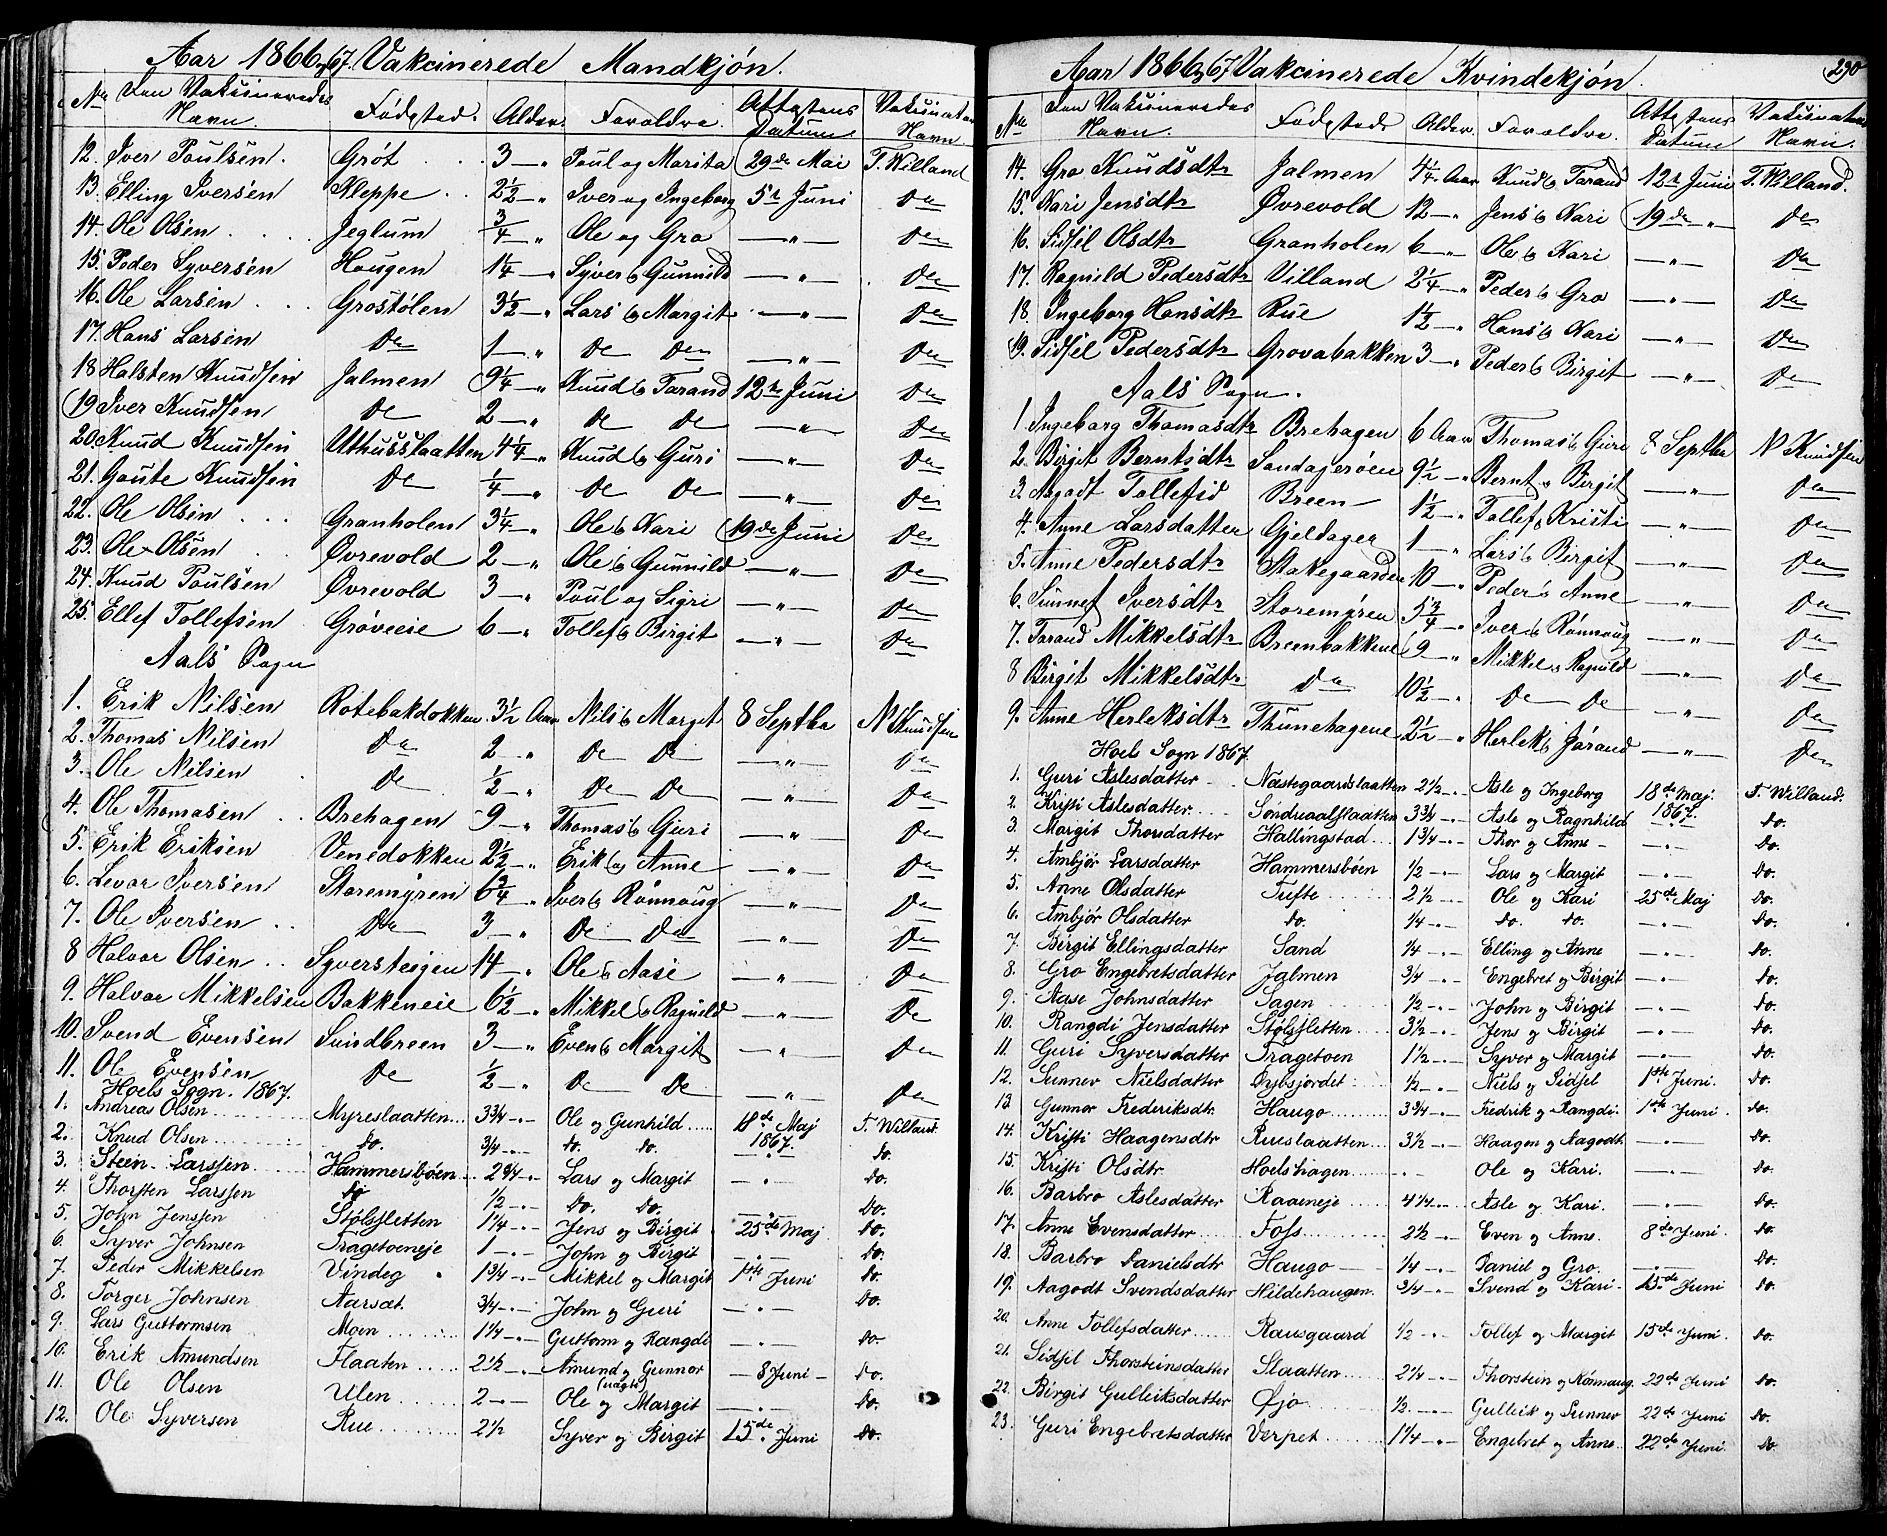 Aar 1866 og 67. Vakcinerede Mandkjøn.
No Den Vaksineredes Navn. Fødested. Alder. Forældre. Attestens Datum Vaksinatøren Navn
12. Iver Poulsen. Grøt 3 — " Poul og Marita 29de Mai T. Willand
13. Elling Iversen Kleppe 2½ — " Iver og Ingeborg 5te Juni Do
14. Ole Olsen Jeglum ¾ — " Ole og Gro — " — Do
15. Peder Syversen Haugen 1¼ — " Syver og Gunnild — " — Do
16. Ole Larsen Grostølen 3½ — " Lars og Margit — " — Do
17. Hans Larsen Do 1 — " Do Do — " — Do
18 Halsten Knudsen Jalmen 9¼ — " Knud og Tarand 12te Juni Do
19 Iver Knudsen Do 2 — " Do Do — " — Do
20. Knud Knudsen Uthusslaatten 4¼ — " Knud og Guri — " — Do
21. Goute Knudsen Do ¼ — " Do Do — " — Do
22. Ole Olsen Granholen 3¼ — " Ole og Kari 19de Juni Do
23. Ole Olsen Øvrevold 2 — " Ole og Gunnild — " — Do
24. Knud Poulsen Øvrevold 3 — " Poul og Sigri — " — Do
25. Ellef Tollefsen Grøveeie 6 — " Tollef og Birgit — " — Do
Aals Sogn
1. Erik Nilsen Rotebakdokken 3½ Aar Nils og Marget 8 Septbr N Knudsen
2. Thomas Nilsen Do 2 " Do Do — " — Do
3. Ole Nilsen Do ½ — " Do Do — " — Do
4. Ole Thomasen Brehagen 9 — " Thomas og Guri — " — Do
5. Erik Eriksen Venedokken 2½ — " Erik og Anne — " — Do
6. Levor Iversen Storemyren 6¾ — " Iver og Rønnoug — " — Do
7. Ole Iversen Do 3 — " Do Do — " — Do
8 Halvor Olsen Syversteigen 14 — " Ole og Aase — " — Do
9. Halvor Mikkelsen Bakkeneie 6½ — " Mikkel og Ragnild — " — Do
10. Svend Evensen Svindbreen 3 — " Even og Margit — " — Do
11. Ole Evensen Do ½ — " Do Do — " — Do
Hoels Sogn. 1867.
1. Andreas Olsen Myreslaatten 3¾ — " Ole og Gunhild 18de Maj 1867. T. Willand
2. Knud Olsen do. ¾ — " do. do. — " — do.
3. Steen Larssen Hammersbøen 2¾ — " Lars og Margit — " — do.
4. Thorsten Larssen do ½ — " do. do. — " — do.
5. John Jenssen Stølsfletten 1¼ — " Jens og Birgit 25de Maj do.
6. Syver Johnsen Tragetoeneje 1 — " John og Birgit — " — do.
7. Peder Mikkelsen Vindeg 1¾ — " Mikkel og Margit 1ste Juni do.
8. Torger Johnsen Aarsæt. ¾ — " John og Guri — " — do.
9. Lars Guttormsen Moen 1¼ — " Guttorm og Rangdi — " — do
10. Erik Amundsen Flaaten 2½ — " Amund og Gunnor 8 Juni do.
11. Ole Olsen Ulen 2 — " Ole og (uægte) Margit — " — do.
12. Ole Syversen Rue 2½ Syver og Birgit 15de Juni do.
Aar 1866 og 67 Vakcinerede Kvindekjøn. 290
No Den Vaksineredes Navn. Fødested Alder. Forældre. Attestens Datum Vaksinatøren Navn.
14. Gro Knudsdtr Jalmen 4¼ Aar Knud og Tarand 12te Juni T. Willand.
15. Kari Jensdtr Øvrevold 12 — " Jens og Kari 19de " Do
16. Sidsel Olsdtr Granholen 6 — " Ole og Kari — " — Do
17. Ragnild Pedersdtr Villand 2¼ — " Peder og Gro — " — Do
18. Ingeborg Hansdtr Rue 1½ — " Hans og Kari — " — Do
19. Sidsel Pedersdtr Grovabakken 3 — " Peder og Birgit — " — Do
Aals Sogn.
1. Ingeborg Thomasdtr Brehagen 6 Aar Thomas og Guri 8 Septbr N Knudsen
2. Birgit Berntsdtr Sandagerøen 9½ — " Bernt og Birgit — " — Do
3. Aagodt Tollefsd Breen 1½ — " Tollef og Kristi — " — Do
4. Anne Larsdatter Gjeldager 1 — " Lars og Birgit — " — Do
5. Anne Pedersdtr Stakegaarden 10 — " Peder og Anne — " — Do
6. Sunnef Iversdtr Storemyren 5¾ — " Iver og Rønnoug — " — Do
7. Tarand Mikkelsdtr Breenbakkene 9 — " Mikkel og Ragnild — " — Do
8 Birgit Mikkelsdtr Do 10½ — " Do Do — " — Do
9. Anne Herleksdtr Thunehagene 2½ — " Herlek og Jorand — " — Do
Hoels Sogn 1867.
1. Guri Aslesdatter Næstegaardslaatten 2½ — " Asle og Ingeborg 18de Maj. 1867. T. Willand.
2. Kristi Aslesdatter Søndreaalslaatten 3¾ — " Asle og Ragnhild do.
3. Margit Thorsdatter Hallingstad 1¾ — " Thor og Anne — " — do.
4. Ambjør Larsdatter Hammersbøen ½ — " Lars og Margit — " — do.
5. Anne Olsdatter Tufte 2½ — " Ole og Kari 25de Maj do.
6. Ambjør Olsdatter do. ¼ — " do. do. — " — do.
7. Birgit Ellingsdatter Sand ¼ — " Elling og Anne — " — do.
8. Gro Engebretsdatter Jalmen ¾ — " Engebret og Birgit — " — do.
9. Aase Johnsdatter Sagen ½ — " John og Birgit — " — do.
10. Rangdi Jensdatter Stølsfletten 3½ — " Jens og Birgit — " — do.
11. Guri Syversdatter Tragetoen 1½ — " Syver og Margit — " — do.
12. Sunnev Nielsdatter Øybsjordet ½ — " Niels og Sidsel 1ste Juni. do.
13. Gunnor Frederiksdtr. Haugo 3¾ — " Fredrik og Rangdi 1ste Juni do.
14. Kristi Haagensdtr Ruuslaatten 3½ — " Haagen og Aagodt — " — do.
15. Kristi Olsdtr. Hoelshagen — " Ole og Kari. — " — do.
16. Barbro Aslesdatter Raaeneje 4¼ — " Asle og Kari. — " — do.
17. Anne Evensdatter Foss 2½ — " Even og Anne. 8de Juni do.
18. Barbro Danielsdtr Haugo ¼ — " Daniel og Gro. — " — do.
19. Aagodt Svendsdatter Hildehaugen ¾ — " Svend og Kari 15de Juni do.
20. Anne Tollefsdatter Rausgaard ½ — " Tollef og Margit 15de Juni do.
21. Sidsel Thorsteinsdatter Slaatten 2¼ — " Thorstein og Rønnaug 22de Juni do.
22. Birgit Gulleiksdatter Øjo ½ — " Gulleik og Sunnev 22de Juni do.
23. Guri Engebretsdatter Verpet 1¼ — " Engebret og Anne 22de Juni do.